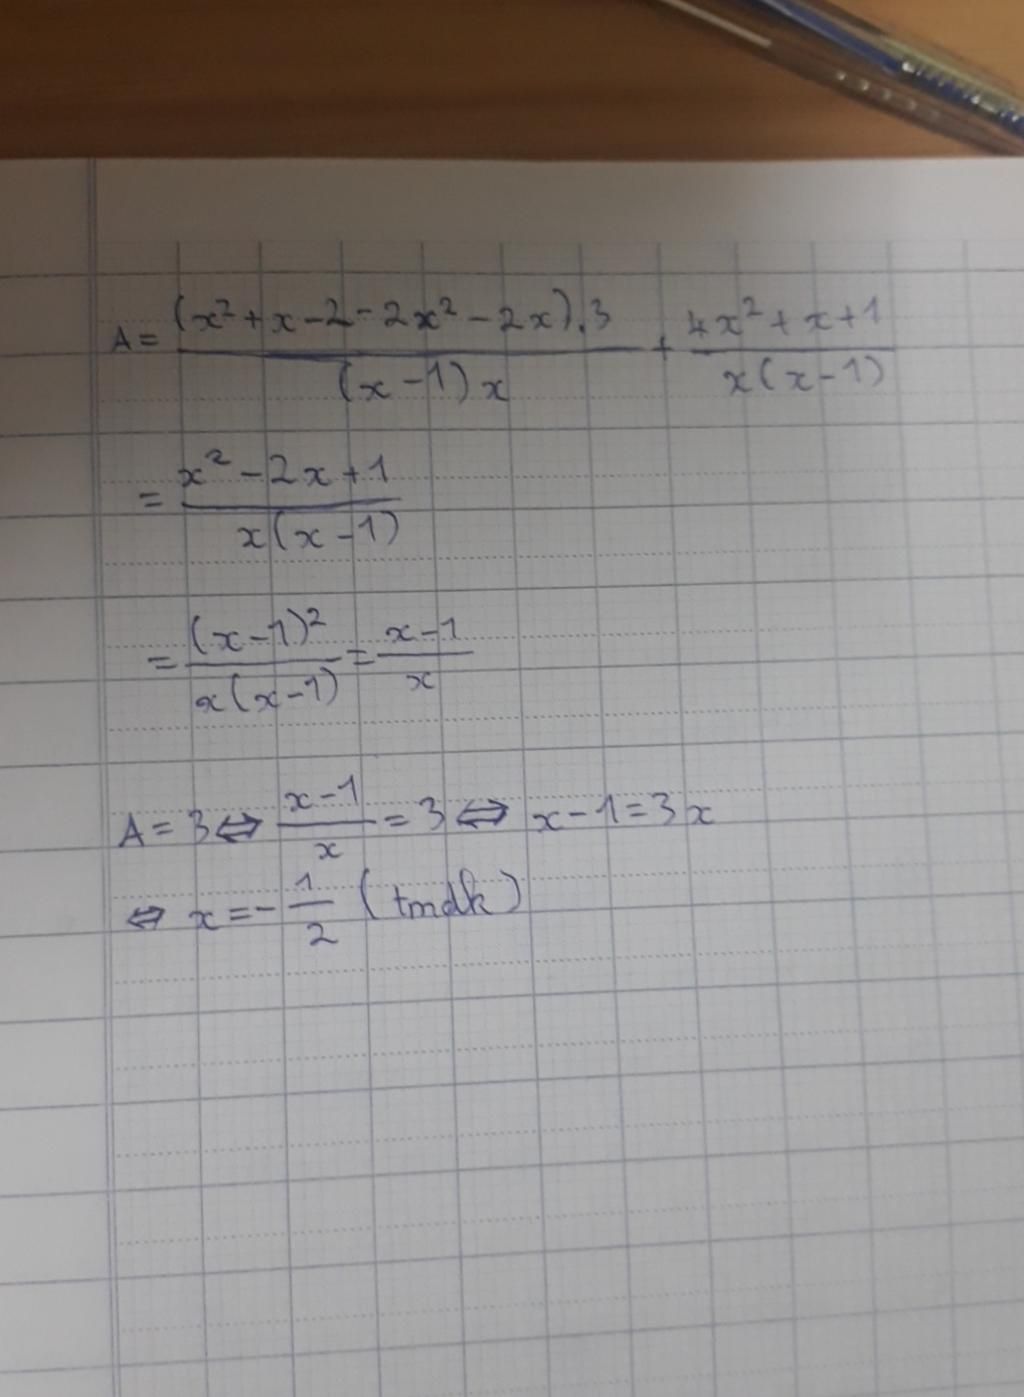 A = \frac{(x^2 + x - 2 - 2x^2 - 2x).3}{(x-1)x} + \frac{4x^2 + x + 1}{x(x-1)}
= \frac{x^2 - 2x + 1}{x(x-1)}
= \frac{(x-1)^2}{x(x-1)} = \frac{x-1}{x}
A = 3 ⇔ \frac{x-1}{x} = 3 ⇔ x - 1 = 3x
⇔ x = -\frac{1}{2} (tmdk)